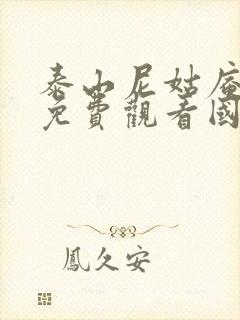 泰山尼姑庵
免費觀看國
鳳久安